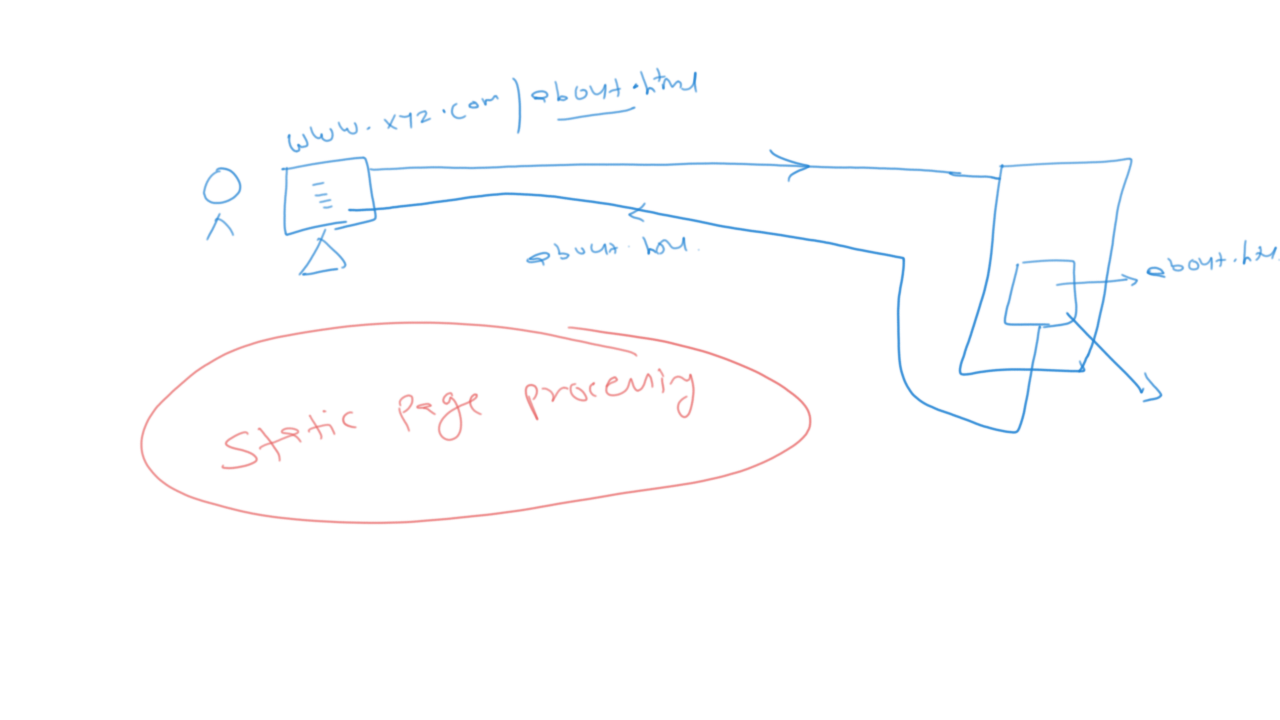 www.xyz.com/about.html
about.html
about.html
Static page processing